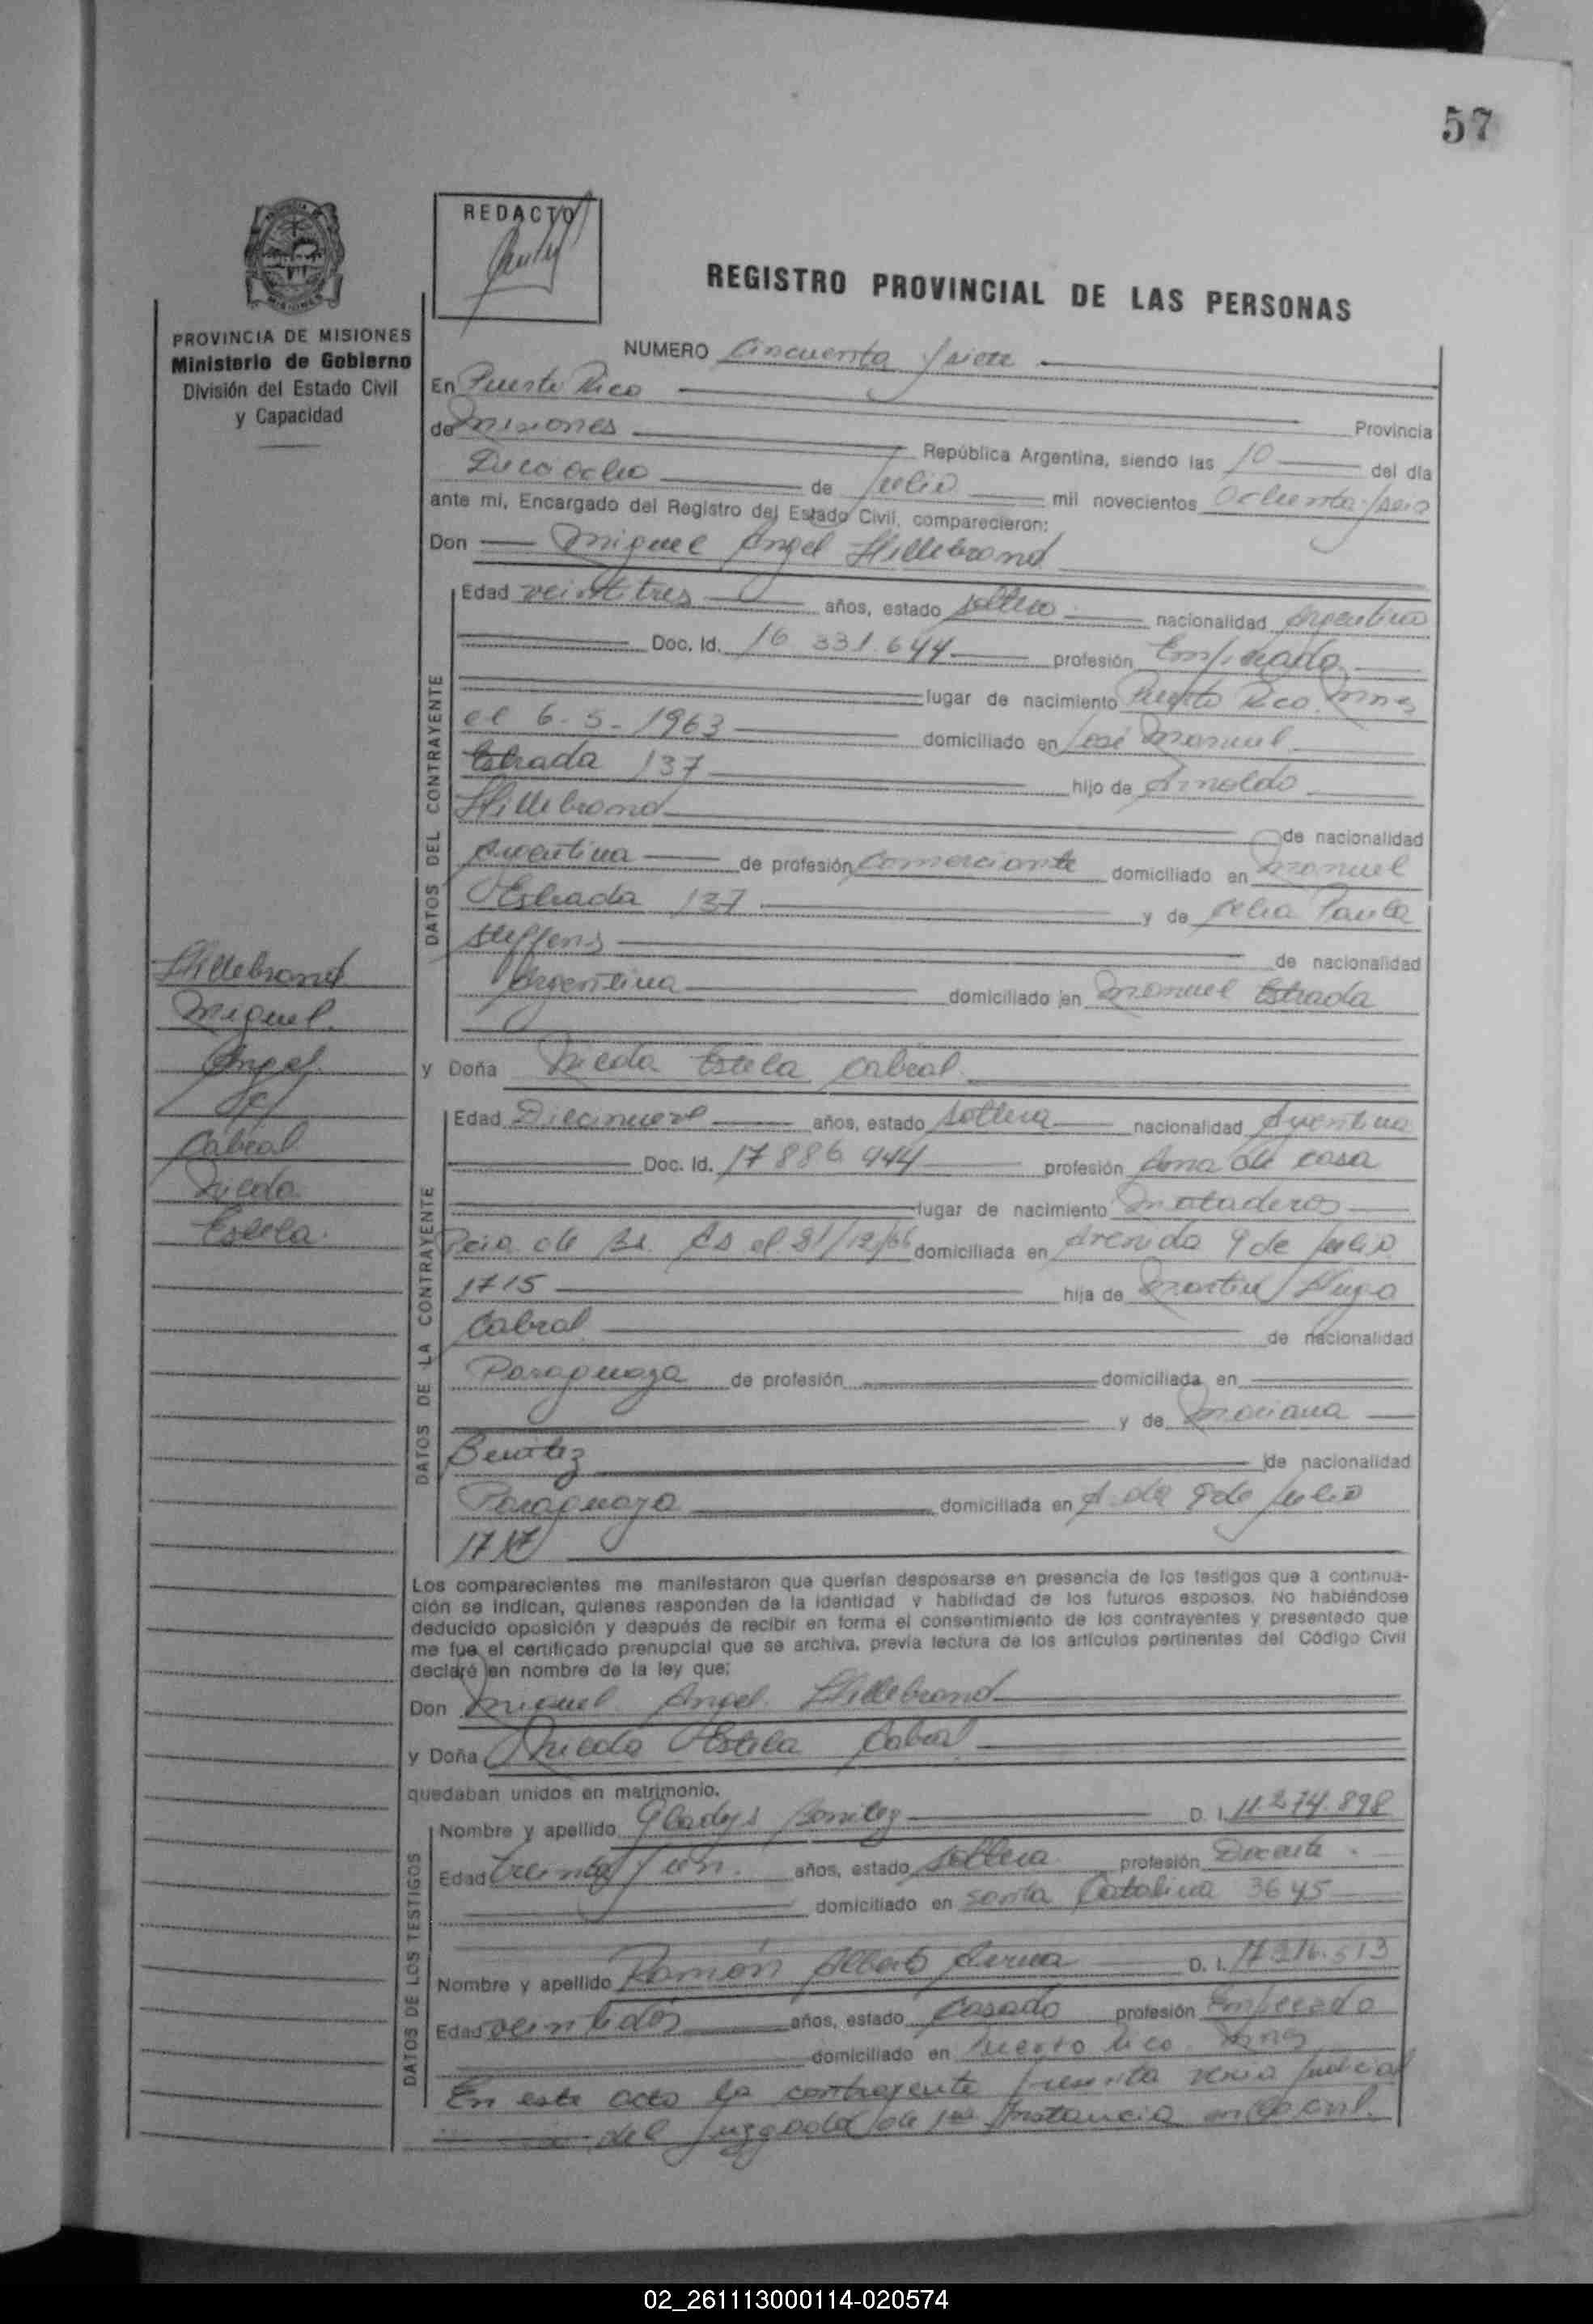 57
REDACTO
REGISTRO PROVINCIAL DE LAS PERSONAS
PROVINCIA DE MISIONES
Ministerio de Gobierno
División del Estado Civil
y Capacidad
NUMERO Cincuenta y siete
En Puerto Rico
Provincia
de Misiones República Argentina, siendo las 10 del día
Dieciocho de Julio mil novecientos Ochenta y seis
ante mi, Encargado del Registro del Estado Civil, comparecieron:
Don Miguel Angel Hillebrand
DATOS DEL CONTRAYENTE
Edad veintitres años, estado soltero nacionalidad Argentina
Doc. Id. 16 331.644 profesión Empleado
lugar de nacimiento Puerto Rico Mnes
el 6-5-1963 domiciliado en José Manuel
Estrada 137 hijo de Arnoldo
Hillebrand de nacionalidad
Argentina de profesión Comerciante domiciliado en Manuel
Estrada 137 y de Celia Paula
Steffens de nacionalidad
Argentina domiciliado en Manuel Estrada
Hillebrand
Miguel
Angel
c/
Cabral
Estela
y Doña Estela Cabral
DATOS DE LA CONTRAYENTE
Edad Diecinueve años, estado soltera nacionalidad Argentina
Doc. Id. 17 886 944 profesión Ama de casa
lugar de nacimiento Mataderos
Pcia de Bs. As el 31/12/66 domiciliada en Avenida 9 de Julio
1715 hija de Martin Hugo
Cabral de nacionalidad
Paraguaya de profesión domiciliada en
y de Mariana
Benitez de nacionalidad
Paraguaya domiciliada en A. da 9 de Julio
Los comparecientes me manifestaron que querían desposarse en presencia de los testigos que a continua-
ción se indican, quienes responden de la identidad y habilidad de los futuros esposos. No habiéndose
deducido oposición y después de recibir en forma el consentimiento de los contrayentes y presentado que
me fue el certificado prenupcial que se archiva, previa lectura de los artículos pertinentes del Código Civil
declaré en nombre de la ley que:
Don Miguel Angel Hillebrand
y Doña Estela Cabral
quedaban unidos en matrimonio.
DATOS DE LOS TESTIGOS
Nombre y apellido Gladys Benitez D. I. 11.274.898
Edad treinta y un años, estado soltera profesión Docente
domiciliado en Santa Catalina 3645
Nombre y apellido Ramón Alberto D. I. 17 316.513
Edad veintidos años, estado Casado profesión Empleado
domiciliado en Puerto Rico Mnes
En este acto la contrayente presenta venia judicial
del Juzgado de 1ra Instancia en lo civil.
02_261113000114-020574